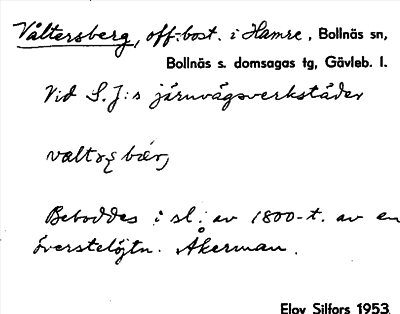 Våltersberg, off.bost. i Hamre, Bollnäs sn,
Bollnäs s. domsagas tg, Gävleb. l.
Vid S.J:s järnvägsverkstäder
Beboddes i sl. av 1800-t. av en
överstelöjtn. Åkerman.
Elov Silfors 1953.